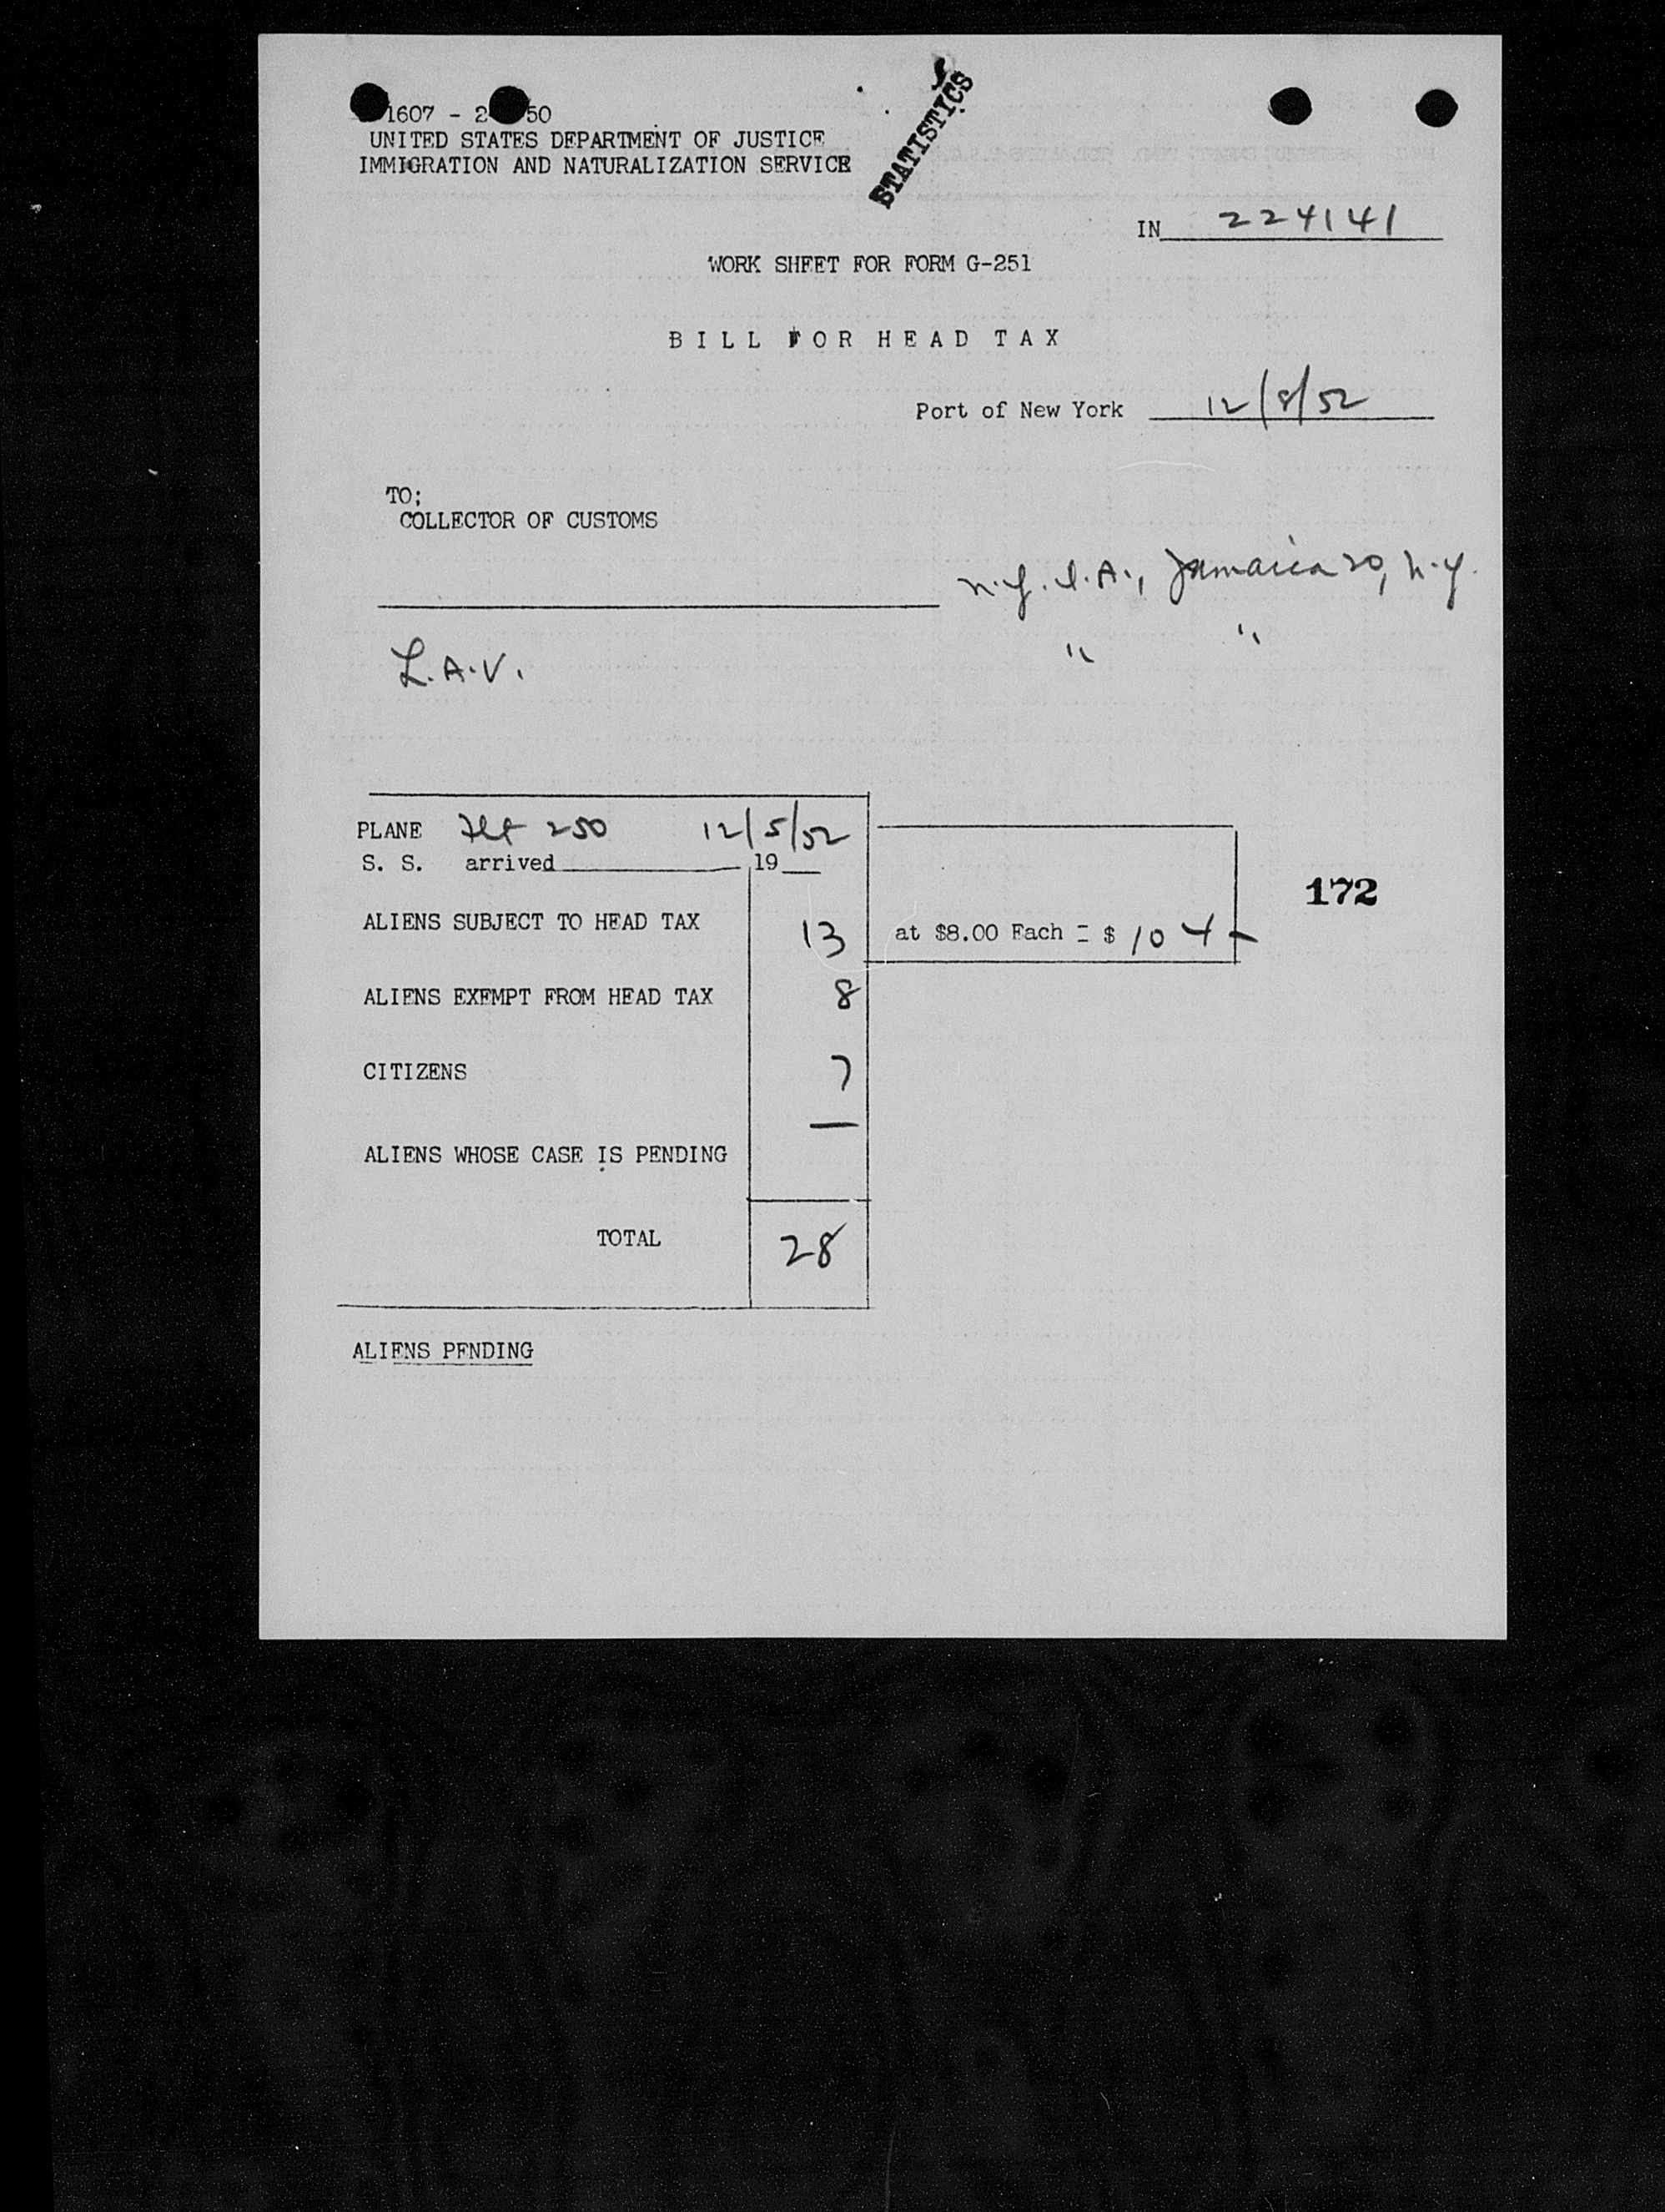 1607 - 2 50
UNITED STATES DEPARTMENT OF JUSTICE
IMMIGRATION AND NATURALIZATION SERVICE
STATISTICS
IN 224141
WORK SHEET FOR FORM G-251
BILL FOR HEAD TAX
Port of New York 12/8/52
TO;
COLLECTOR OF CUSTOMS
N.Y.I.A., Jamaica 20, N.Y.
" "
L.A.V.
PLANE Flt 250 12/5/52
S. S. arrived 19
172
ALIENS SUBJECT TO HEAD TAX 13 at $8.00 Each = $ 104-
ALIENS EXEMPT FROM HEAD TAX 8
CITIZENS 7
ALIENS WHOSE CASE IS PENDING —
TOTAL 28
ALIENS PENDING